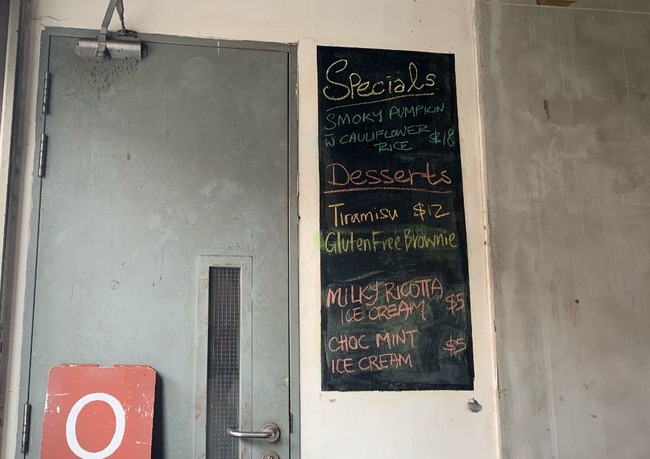 Specials
SMOKY PUMPKIN
W CAULIFLOWER
RICE $18
Desserts
Tiramisu $12
Gluten Free Brownie
MILKY RICOTTA
ICE CREAM $5
CHOC MINT
ICE CREAM $5
O